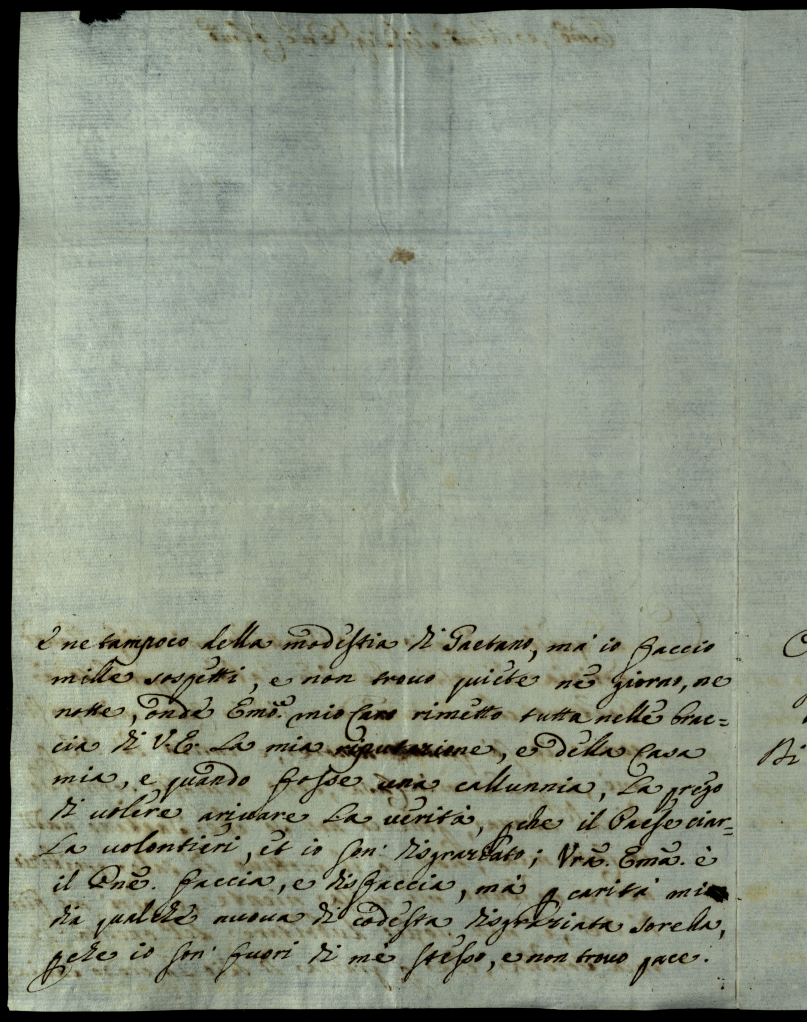 e ne tampoco della modestia di Gaetano, mà io faccio
mille sospetti, e non trouo quiete nè giorno, ne
notte, onde Emō. mio Caro rimetto tutta nelle brac=
cia di V. E. La mia riputazione, e della Casa
mia, e quando fosse una callunnia, La prego
di uolere ariuare La uerità, pche il Paese ciar=
La uolontieri, et io son' disgraziato; Vrā. Emā. è
il Pnē. faccia, e disfaccia, mà p carità mi
dia qualche nuoua di codesta disgraziata sorella,
pche io son' fuori di me stesso, e non trouo pace.